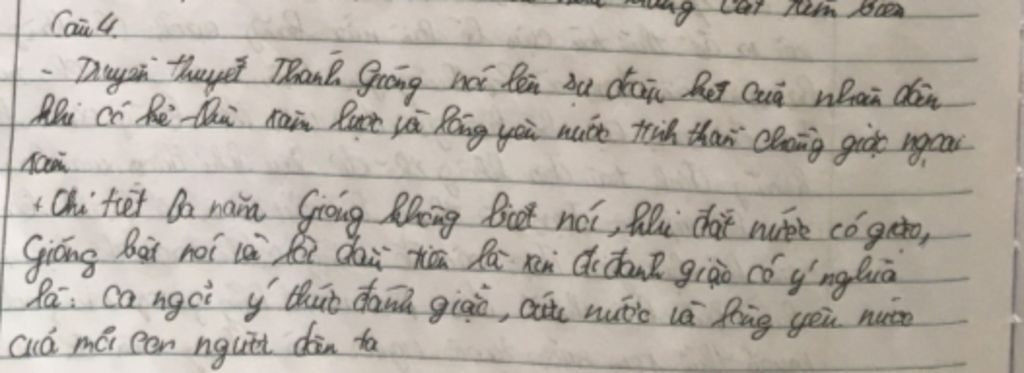 Câu 4.
- Truyền thuyết Thánh Gióng nói lên sự đoàn kết của nhân dân
khi có kẻ thù xâm lược và lòng yêu nước tinh thần chống giặc ngoại
xâm
+ Chi tiết ba năm Gióng không biết nói, khi đất nước có giặc,
Gióng bật nói và lời đầu tiên là xin đi đánh giặc có ý nghĩa
là: ca ngợi ý thức đánh giặc, cứu nước và lòng yêu nước
của mỗi con người dân ta